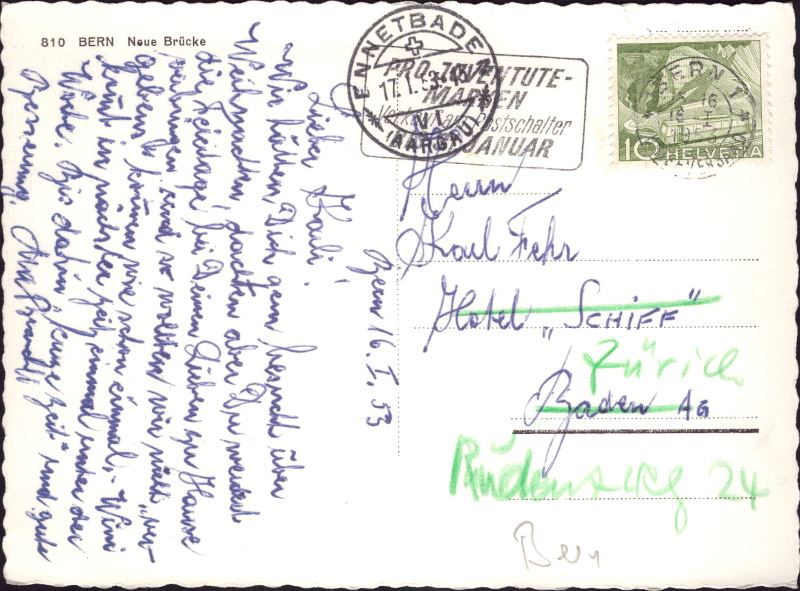 810 BERN Neue Brücke
ENNETBADEN
17.1.53
(AARGAU)
PRO JUVENTUTE-
MARKEN
Verkauf am Postschalter
JANUAR
BERN 1
16
1953
10 HELVETIA
Bern 16. I. 53
Lieber Karli!
Wir hätten Dich gern besucht über
Weihnachten, dachten aber Du werdest
die Feiertage bei Deinen Lieben zu Hause
verbringen und so wollten wir nichts ver-
geben. Können wir schon einmal.- Wir
in nächster Zeit einmal unter der
Woche. Bis dahin junge Zeit und gute
Besserung
Herrn
Karl Fehr
Hotel „SCHIFF"
Zürich
Baden AG
24
Bern